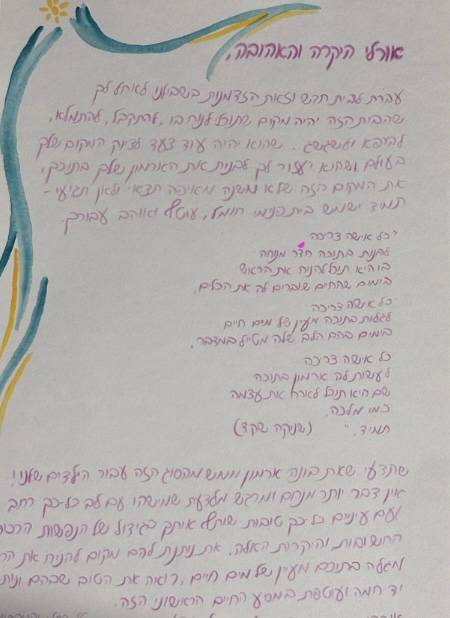 אורלי היקרה והאהובה,
עברת לבית חדש וזאת הזדמנות בשבילנו לאחל לך
שהבית הזה יהיה מקום שתוכלי לנוח בו, להתקבל, להתמלא,
להירפא ולשגשג.. שהוא יהיה עוד צעד לציוק המקום שלך
בעולם ושהוא יעזור לך לבנות את הארמון שלך בתוכך,
את המקום הזה שלא משנה מאיפה תצאי ולאן תגיעי -
תמיד ישמש בית פנימי חומל, עוטף ואוהב עבורך.
"כל אישה צריכה
לבנות בתוכה חדר מנוחה
בו היא תוכל להניח את הראש
בימים שהחיים שוברים לה את הכלים.
כל אישה צריכה
לגלות בתוכה מעיין של מים חיים
בימים בהם הלב שלה מטייל במדבר.
כל אישה צריכה
לעשות לה ארמון בתוכה
שם היא תוכל לארח את עצמה
כמו מלכה.
תמיד." (שניקה שקד)
שתדעי שאת בונה ארמון ממש מהסוג הזה עבור הילדים שלנו!
אין דבר יותר מנחם ומרגש מלדעת שמישהו עם לב כל-כך רחב
ועם עיניים כל-כך טובות שותף איתך בגידול של הנפשות הרכות
החשובות והיקרות האלה. את נותנת להם מקום להניח את הר
ומגלה בתוכם מעיין של מים חיים, רואה את הטוב שבהם ונות
יד חמה ועוטפת במסע החיים הראשוני הזה.